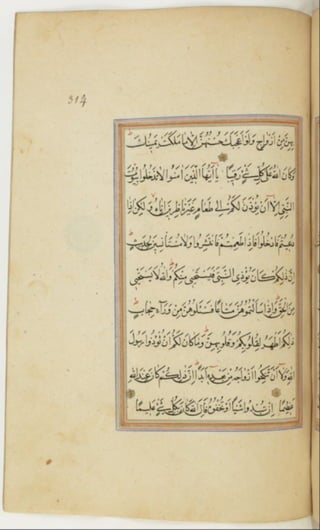 314
بهن من ازواج ولو اعجبك حسنهن الا ما ملكت يمينك
وكان الله على كل شيء رقيبا يا ايها الذين امنوا لا تدخلوا بيوت
النبي الا ان يؤذن لكم الى طعام غير ناظرين انيه ولكن اذا
دعيتم فادخلوا فاذا طعمتم فانتشروا ولا مستأنسين لحديث
ان ذلكم كان يؤذي النبي فيستحيي منكم والله لا يستحيي
من الحق واذا سألتموهن متاعا فسئلوهن من وراء حجاب
ذلكم اطهر لقلوبكم وقلوبهن وما كان لكم ان تؤذوا رسول
الله ولا ان تنكحوا ازواجه من بعده ابدا ان ذلكم كان عند الله
عظيما ان تبدوا شيئا او تخفوه فان الله كان بكل شيء عليما